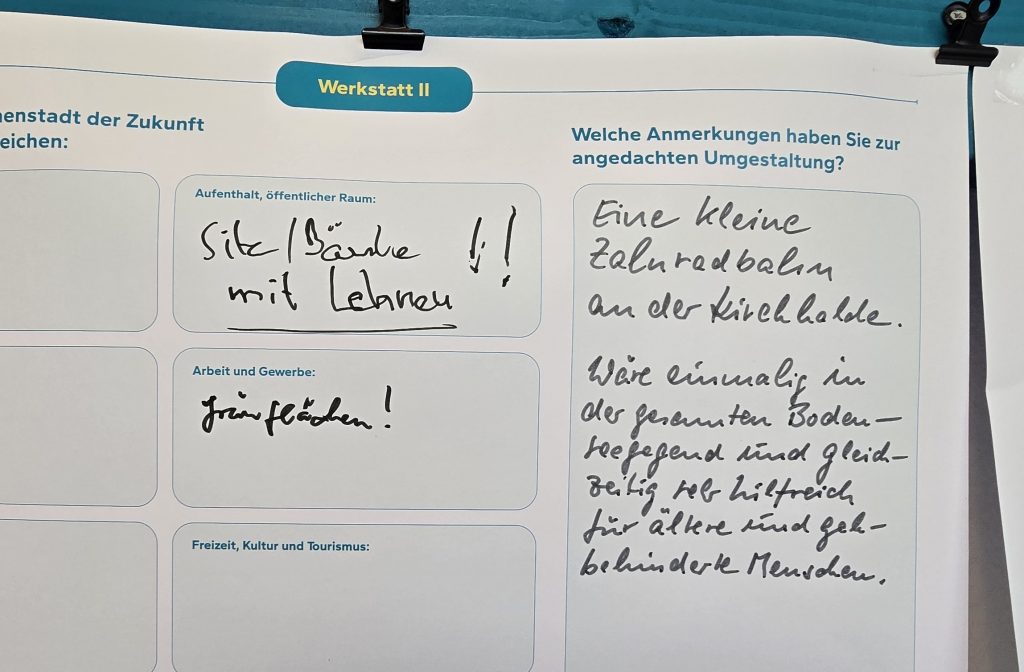 Werkstatt II
enstadt der Zukunft
eichen:
Aufenthalt, öffentlicher Raum:
Sitz/Bänke !!!
mit Lehnen
Arbeit und Gewerbe:
Grünflächen!
Freizeit, Kultur und Tourismus:
Welche Anmerkungen haben Sie zur
angedachten Umgestaltung?
Eine kleine
Zahnradbahn
an der Kirchhalde.
Wäre einmalig in
der gesamten Boden-
seegegend und gleich-
zeitig sehr hilfreich
für ältere und geh-
behinderte Menschen.